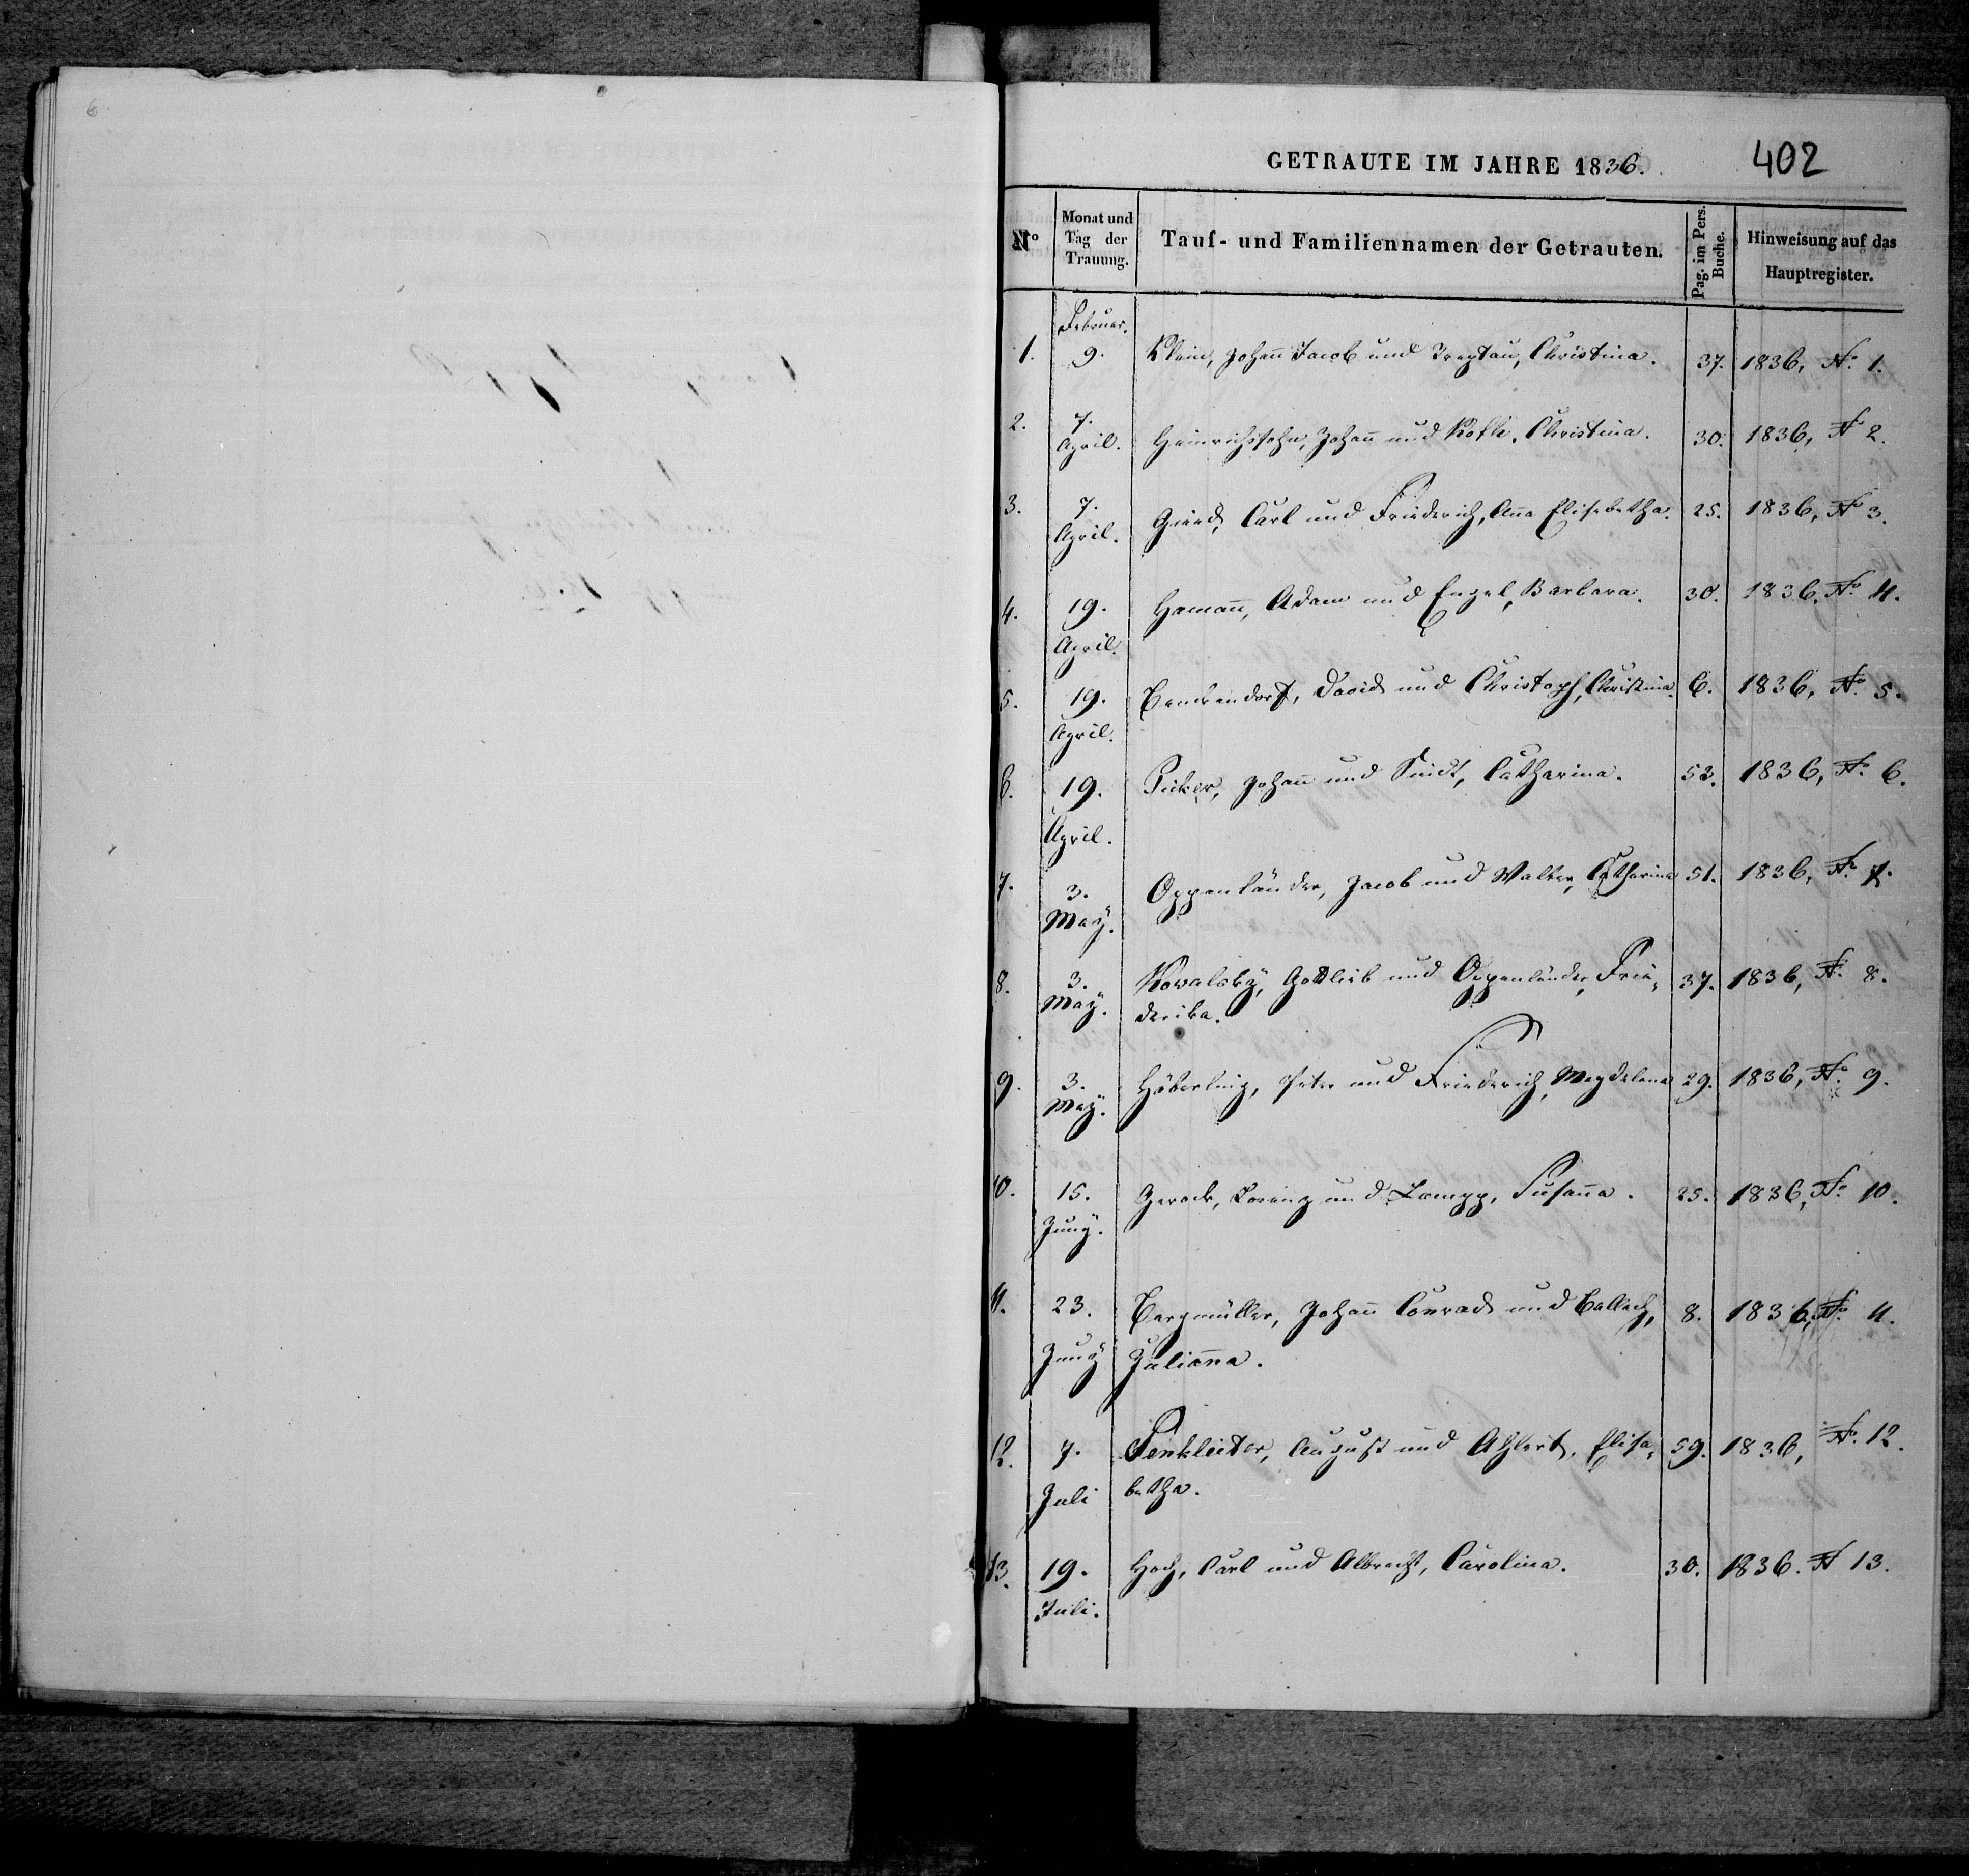 6
GETRAUTE IM JAHRE 1836.
402
Nº
Monat und
Tag der
Trauung.
Tauf- und Familiennamen der Getrauten.
Pag. im Pers.
Buche.
Hinweisung auf das
Hauptregister.
Februar.
1. 9. Klein, Johañ Jacob und Treptau, Christina. 37. 1836, Nº 1.
2. 7. April. Heinrichsohn, Johañ und Christina. 30. 1836, Nº 2.
3. 7. April. Carl und Friederich, Aña Elisabetha. 25. 1836, Nº 3.
4. 19. April. Hamañ, Adam und Engel, Barbara. 30. 1836. Nº 4.
5. 19. April. Benkendorf, David und Christoph, Christina. 6. 1836, Nº 5.
6. 19. April. Johañ und Catharina. 53. 1836, Nº 6.
7. 3. May. Oppenländer, Jacob und Walter, Catharina 51. 1836, Nº 7.
8. 3. May. Kovalsky, Gottlieb und Oppenländer, Frie- 37. 1836, Nº 8.
derika.
9. 3. May. Häberling, Peter und Friederich, Magdalena 29. 1836, Nº 9.
10. 15. Juny. Gerock, Lorenz und Zampp, Susaña. 25. 1836, Nº 10.
11. 23. Juny Bergmüller, Johañ Conrad und Ballach, 8. 1836, Nº 11.
Juliaña.
12. 7. Juli Penkleiter, August und Ahlert, Elisa- 59. 1836, Nº 12.
betha.
13. 19. Juli. Hoch, Carl und Albrecht, Carolina. 30. 1836. Nº 13.